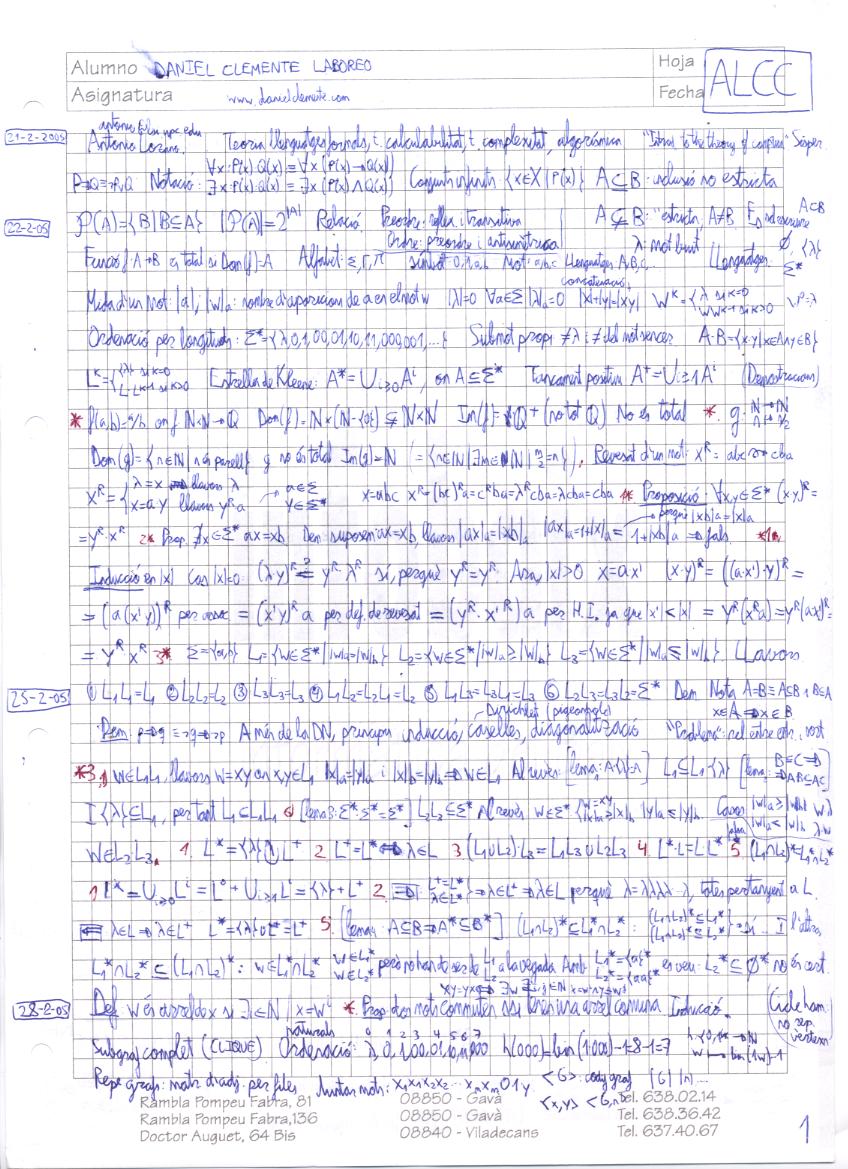 Alumno DANIEL CLEMENTE LABOREO Hoja
Asignatura www.danielclemente.com Fecha ALCC
21-2-2005 Antonio Lozano. Teoria llenguatges formals, t. calculabilitat, t. complexitat, algorísmica "Introd. to the theory of comput" Sipser
P→Q≡¬P∨Q Notació: ∀x:P(x):Q(x)≡∀x(P(x)→Q(x))
∃x:P(x):Q(x)≡∃x(P(x)∧Q(x)) Conjunts infinits: {x∈X|P(x)} A⊆B: inclusió no estricta
22-2-05 P(A)={B|B⊆A} |P(A)|=2^|A| Relació Preordre: reflex. i transitiva A⊊B: "estricta, A≠B
Ordre: preordre i antisimètrica λ mot buit ∅, {λ}
Funció f:A→B és total si Dom(f)=A Alfabet: Σ, Γ, Π símbol 0,1,a,b Mot: a,b,c Llenguatges A,B,C,.. Llenguatges: Σ*
concatenació
Mida d'un mot: |a|; |w|a: nombre d'aparicions de a en el mot w |λ|=0 ∀a∈Σ |λ|a=0 |x|+|y|=|xy| W^K={λ si K=0
Ordenació per longitud: Σ*={λ,0,1,00,01,10,11,000,001,...} Submot propi ≠λ i ≠ del mot sencer A·B={x·y|x∈A∧y∈B}
L^K={{λ} si K=0
L·L^K-1 si K>0 Estrella de Kleene: A*=∪i≥0 A^i, on A⊆Σ* Tancament positiu A+=∪i≥1 A^i (Demostracions)
* f(a,b)=a/b on f: N×N→Q Dom(f)=N×(N-{0})⊊N×N Im(f)=Q+ (no tot Q) No és total *. g: N→N n→n/2
Dom(g)={n∈N|n és parell} g no és total Im(g)=N (={n∈N|∃m∈N| m/2=n}). Revessat d'un mot: x^R= abc→cba
x^R={λ=x llavors λ
x=ay llavors y^R a a∈Σ y∈Σ* x=abc x^R=(bc)^R a=c^R ba=λ^R cba=λcba=cba 1* Proposició: ∀x,y∈Σ* (xy)^R=
=y^R·x^R 2* Prop. ∄x∈Σ* ax=xb Dem: suposem ax=xb, llavors |ax|a=|xb|a |ax|a=1+|x|a= 1+|xb|a → fals. *1a
perquè |xb|a=|x|a
Inducció en |x| Cas |x|=0: (λy)^R ?= y^R·λ^R sí, perquè y^R=y^R. Ara, |x|>0 x=ax' (x·y)^R=((a·x')·y)^R=
=(a(x'y))^R per assoc =(x'y)^R a per def. de revessat =(y^R·x'^R)a per H.I. ja que |x'|<|x| =y^R(x'^R a)=y^R(ax')^R=
=y^R x^R 3* Σ={a,b} L1={w∈Σ*| |w|a=|w|b} L2={w∈Σ*| |w|a≥|w|b} L3={w∈Σ*| |w|a≤|w|b} Llavors
25-2-05 ① L1L1=L1 ② L2L2=L2 ③ L3L3=L3 ④ L1L2=L2L1=L2 ⑤ L1L3=L3L1=L3 ⑥ L2L3=L3L2=Σ* Dem Nota A=B≡A⊆B∧B⊆A
Dirichlet (pigeonhole) x∈A ⇒ x∈B
Dem: p→q≡¬q→¬p A més de la DN, principis inducció, caselles, diagonalització "Problema": rel entre entr. i sort
*3. 1 w∈L1L1, llavors w=xy on x,y∈L1 |x|a=|x|b i |y|a=|y|b ⇒ w∈L1 Al revés: [lema1: A{λ}=A] L1⊆L1{λ} [lema2: B⊆C ⇒ AB⊆AC]
I {λ}⊆L1, per tant L1⊆L1L1 6 [lema3: Σ*·Σ*=Σ*] L2L3⊆Σ* Al revés w∈Σ* Casos
w∈L2L3. 1. L*={λ}∪L+ 2 L+=L* ⇔ λ∈L 3 (L1∪L2)·L3=L1L3∪L2L3 4. L*·L=L·L* 5. (L1∩L2)*=L1*∩L2*
1 L*=∪i≥0 L^i=L^0+∪i≥1 L^i={λ}+L+ 2. ⇒ L+=L* λ∈L* } ⇒ λ∈L+ ⇒ λ∈L perquè λ=λλλλ·λ, totes pertanyent a L.
⇐ λ∈L ⇒ λ∈L+ L*={λ}∪L+=L+ 5. [lema4: A⊆B ⇒ A*⊆B*] (L1∩L2)*⊆L1*∩L2*: (L1∩L2)*⊆L1* (L1∩L2)*⊆L2* } ⇒ sí... I l'altre,
L1*∩L2*⊆(L1∩L2)*: w∈L1*∩L2* w∈L1* w∈L2* però no han de ser de L1 i L2 a la vegada. Amb es veu: L2*⊆∅* no és cert.
28-2-05 Def. w és arrel de x si ∃i∈N | x=w^i *. Prop: dos mots commuten sii tenen una arrel comuna. Inducció. (Cicle ham: no rep. vèrtexs)
naturals 0 1 2 3 4 5 6 7
Subgraf complet (CLIQUE). Ordenació: λ,0,1,00,01,10,11,000 h(000)=bin(1000)-1=8-1=7 h:{0,1}*→N w→bin(1w)-1
Repr. grafs: matr. d'adj. per files Juntar mots: x1x1x2x2...xnxn01y <G>: codif graf
<x,y>
Rambla Pompeu Fabra, 81 08850 - Gavà Tel. 638.02.14
Rambla Pompeu Fabra,136 08850 - Gavà Tel. 638.36.42
Doctor Auguet, 64 Bis 08840 - Viladecans Tel. 637.40.67
1